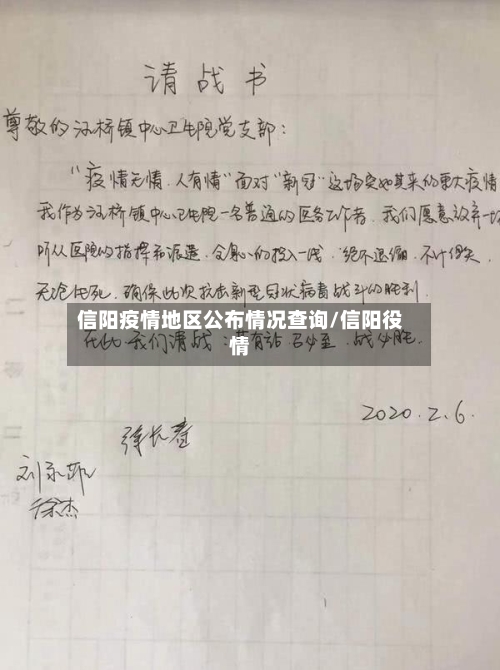 请战书
尊敬的汪桥镇中心卫生院党支部:
"疫情无情,人有情"面对"新冠"这场突如其来的重大疫情
我作为汪桥镇中心卫生院一名普通的医务工作者,我们愿意放弃一切
听从医院的指挥和派遣,全身心的投入一线,绝不退缩,不计得失
无论生死,确保此次抗击新型冠状病毒战斗的胜利.
信阳疫情地区公布情况查询/信阳役
情
在此我们请战:若有 召必至,战必胜.
2020.2.6.
徐长
刘
徐杰